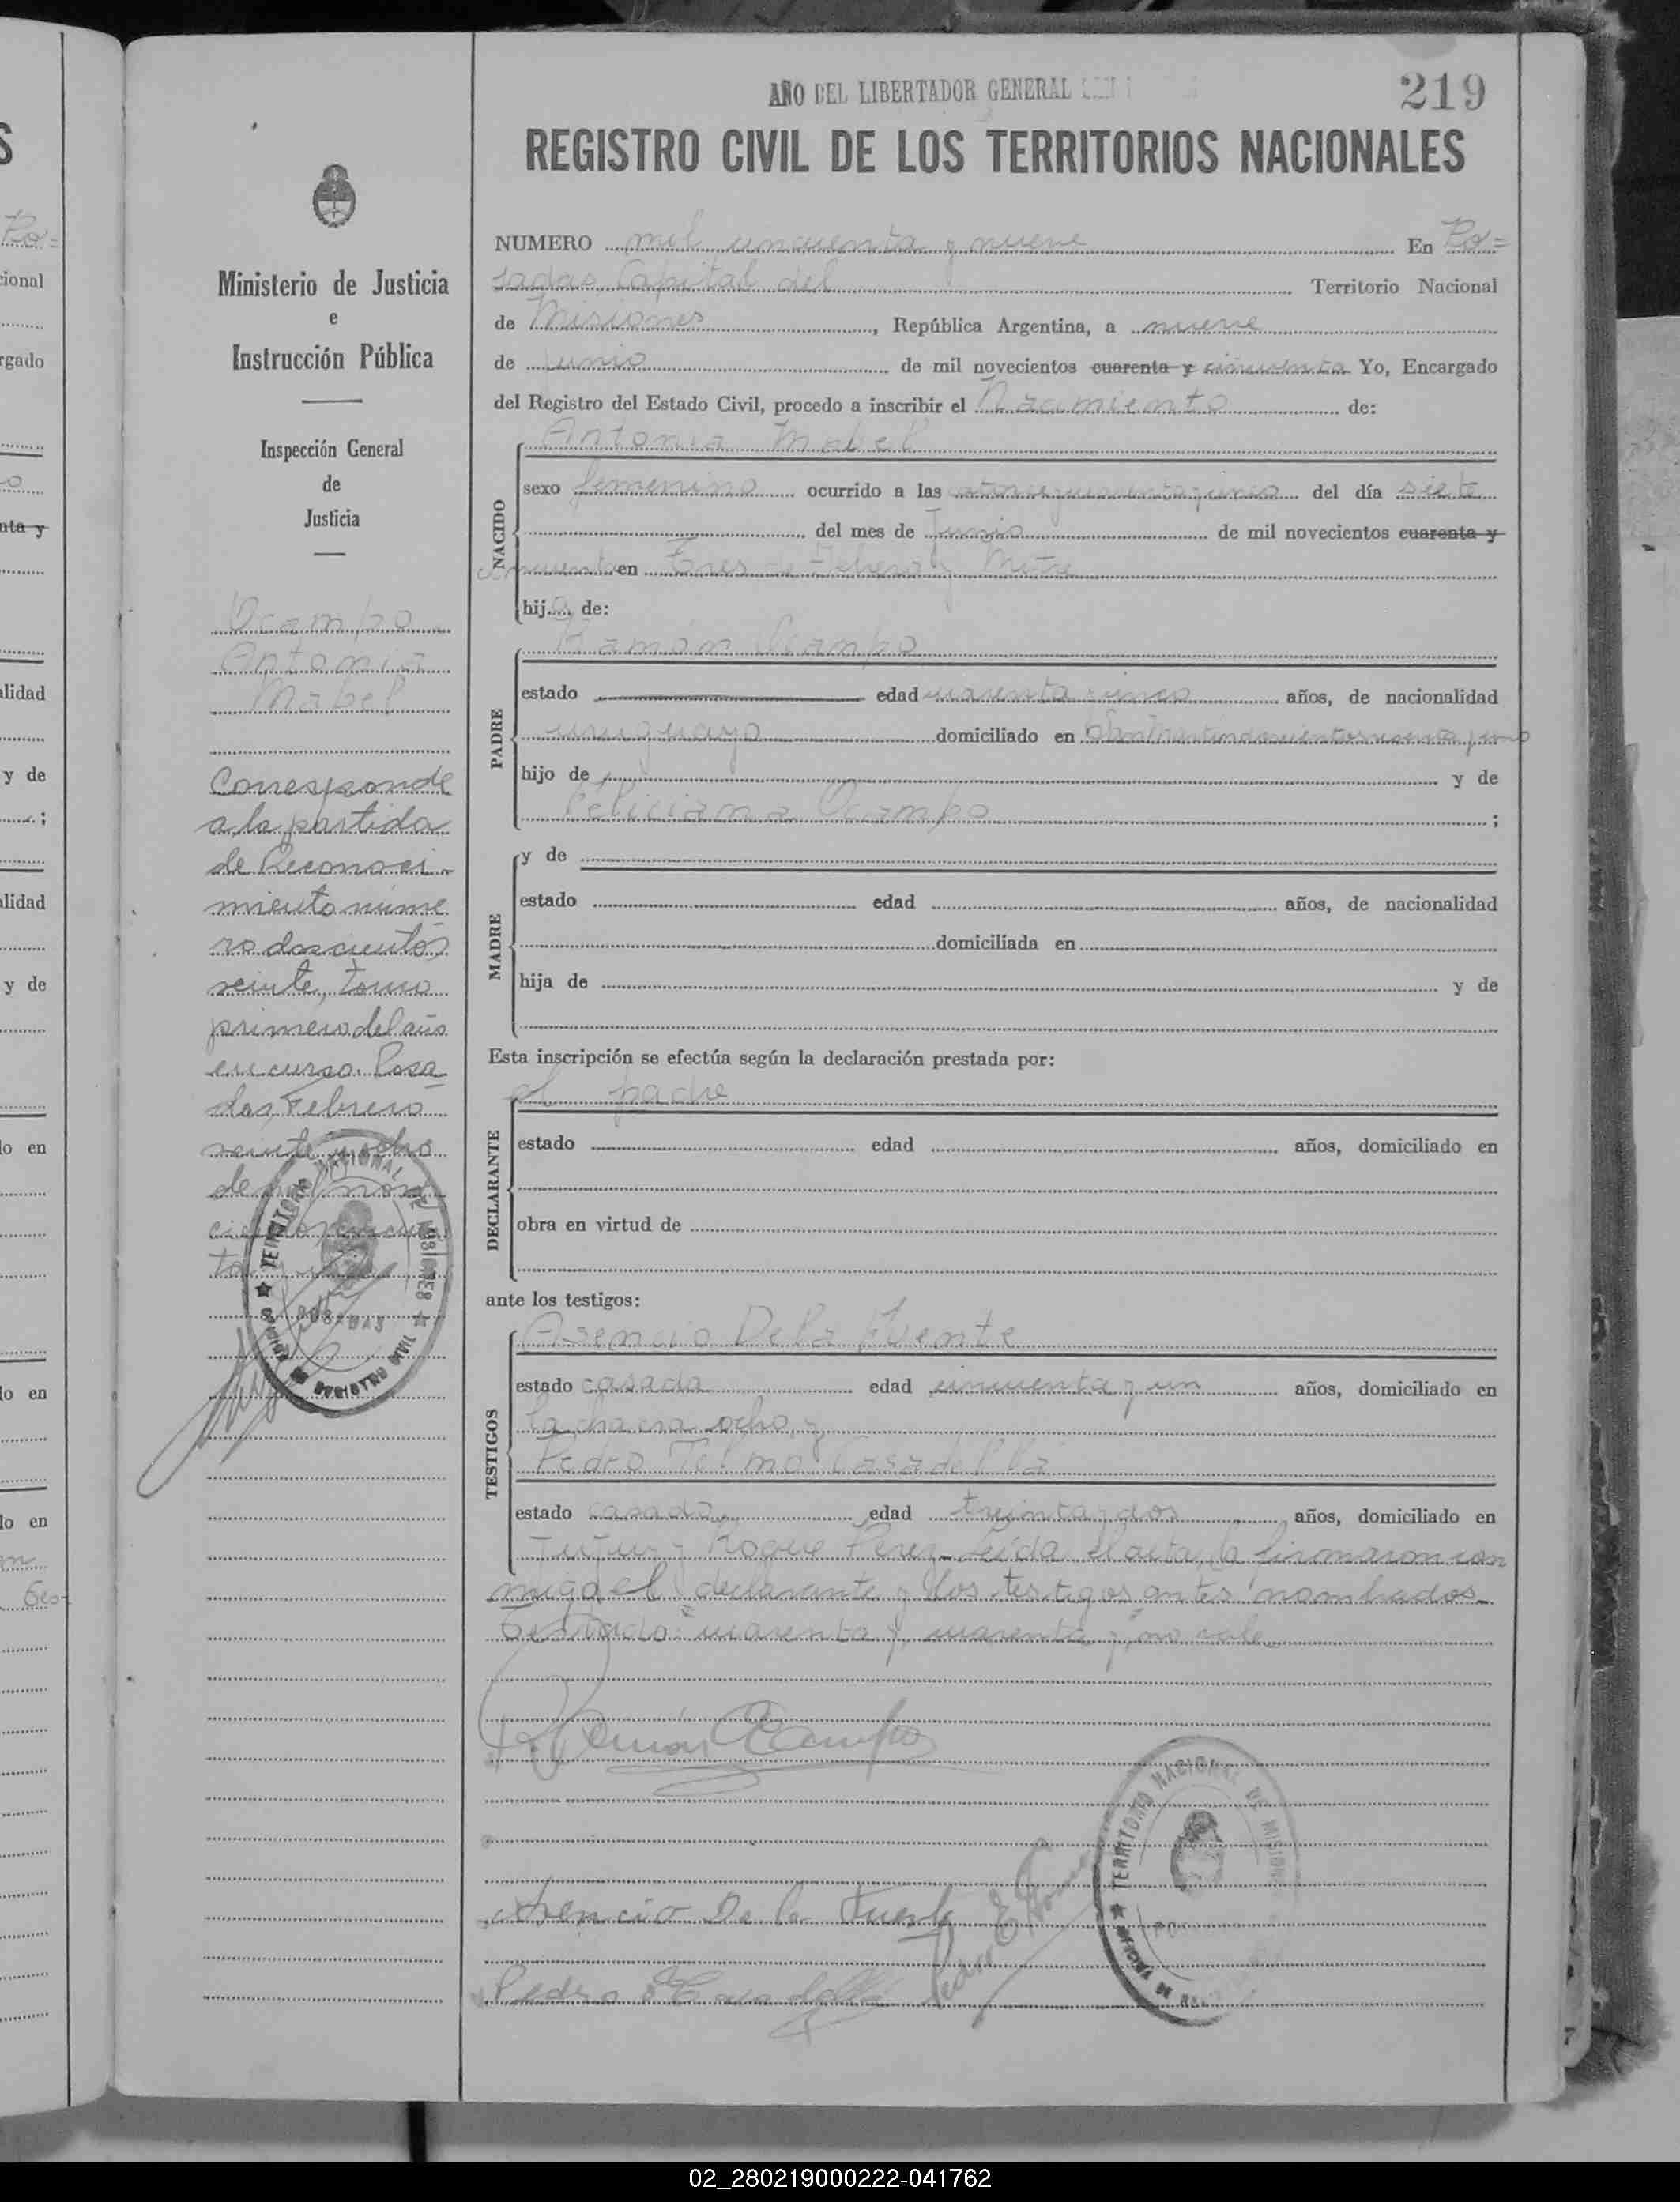 AÑO DEL LIBERTADOR GENERAL
219
REGISTRO CIVIL DE LOS TERRITORIOS NACIONALES
Ministerio de Justicia
e
Instrucción Pública
Inspección General
de
Justicia
Ocampo
Antonia
Mabel
Corresponde
a la partida
de Reconoci-
miento núme
ro doscientos
veinte, tomo
primero del año
en curso. Posa
das, Febrero
veinte y ocho
de mil nove
cientos cincuen
ta y uno
TERRITORIO NACIONAL DE MISIONES
POSADAS
OFICINA DE REGISTRO CIVIL
NUMERO mil cincuenta y nueve En Po=
sadas Capital del Territorio Nacional
de Misiones, República Argentina, a nueve
de Junio de mil novecientos cuarenta y cincuenta Yo, Encargado
del Registro del Estado Civil, procedo a inscribir el Nacimiento de:
NACIDO
Antonia Mabel
sexo femenino ocurrido a las catorce y cuarenta y cinco del día siete
del mes de Junio de mil novecientos cuarenta y
cincuenta en Tres de Febrero y Mitre
hija de:
PADRE
Ramón Ocampo
estado edad cuarenta y cinco años, de nacionalidad
uruguayo domiciliado en San Martin doscientos y uno
hijo de y de
Feliciana Ocampo ;
MADRE
y de
estado edad años, de nacionalidad
domiciliada en
hija de y de
Esta inscripción se efectúa según la declaración prestada por:
DECLARANTE
el padre
estado edad años, domiciliado en
obra en virtud de
ante los testigos:
TESTIGOS
Asencio De la Fuente
estado casado edad cincuenta y un años, domiciliado en
la chacra ocho, y
Pedro Telmo Casadella
estado casado, edad treinta y dos años, domiciliado en
Jujuy y Roque Perez - Leída el acta, la firmaron con
migo el declarante y los testigos antes nombrados.
Testado: "cuarenta y, cuarenta y", no vale
Ramón Ocampo
Asencio De la Fuente
Pedro
TERRITORIO NACIONAL DE MISIONES
OFICINA DE
02_280219000222-041762